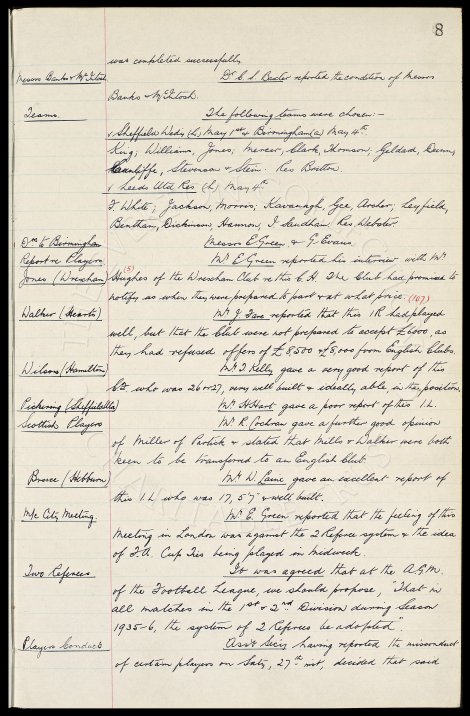 8
was completed successfully.
Messrs Banks & McIntosh Dr. C. S. Baxter reported the condition of Messrs
Banks & McIntosh.
Teams. The following teams were chosen:-
v Sheffield Wedy (h) May 1st & Birmingham (a) May 4th
King; Williams, Jones; Mercer, Clark, Thomson; Geldard, Dunn,
Cunliffe, Stevenson & Stein. Res Britton.
v Leeds Utd Res (h) May 4th
F. White; Jackson, Morris; Kavanagh, Gee, Archer; Leyfield,
Bentham, Dickinson, Hannon, I. Sandham; Res. Webster.
Drs to Birmingham Messrs E. Green & G. Evans.
Report re Players Mr. E. Green re his interview with Mr.
Jones (Wrexham) (5) Hughes of the Wrexham Club re this C.H. The Club had promised to
notify us when they were prepared to part & at what price. (107)
Walker (Hearts) Mr. J. Fare reported that this I R had played
well, but that the Club were not prepared to accept £6000, as
they had refused offers of £8500 & £8,000 from English Clubs.
Wilson (Hamilton) Mr. T. Kelly gave a very good report of this
who was 26 or 27, very well built & ideally able in the position.
Pickering (Sheffield Utd) Mr. H. Hart gave a poor report of this I.L.
Scottish Players Mr. R. Cochran gave a further good opinion
of Miller of Partick & stated that Mills & Walker were both
keen to be transferred to an English Club.
Bruce (Hebburn) Mr. W. gave an excellent report of
this I L who was 17, 5'7" & well built.
M/c City Meeting. Mr. E. Green reported that the feeling of this
Meeting in London was against the 2 Referee system & the idea
of F.A. Cup Ties being played in Midweek.
Two Referees It was agreed that at the A.G.M.
of the Football League, we should propose, "That in
all matches in the 1st & 2nd Division during Season
1935-6, the system of 2 Referees be adopted".
Players Conduct Asst. Secy having reported the misconduct
of certain players on Saty, 27th inst, decided that said